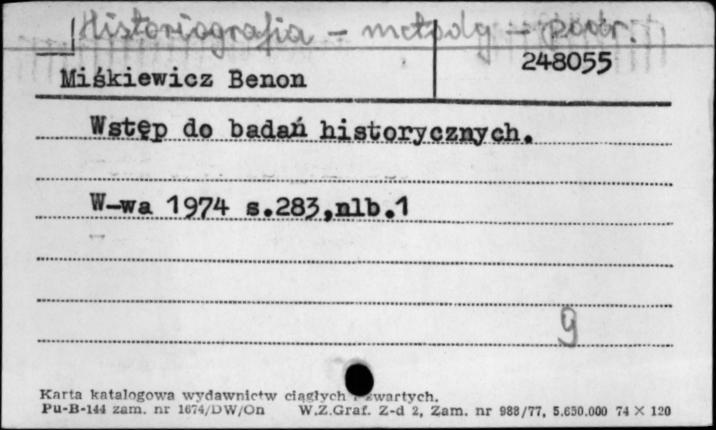 Historiografia - metody - podr.
248055
Miśkiewicz Benon
Wstęp do badań historycznych.
W-wa 1974 s.283,nlb.1
9
Karta katalogowa wydawnictw ciągłych i zwartych.
Pu-B-144 zam. nr 1674/DW/On W.Z.Graf. Z-d 2, Zam. nr 988/77, 5.650.000 74 X 120